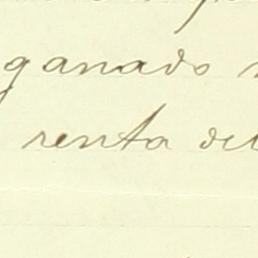 ganado
renta de